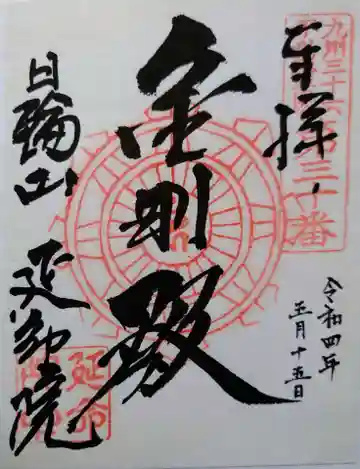 奉拝
九州三十六
第三十番
令和四年
五月十五日
金剛殿
日輪山 延命院
延命